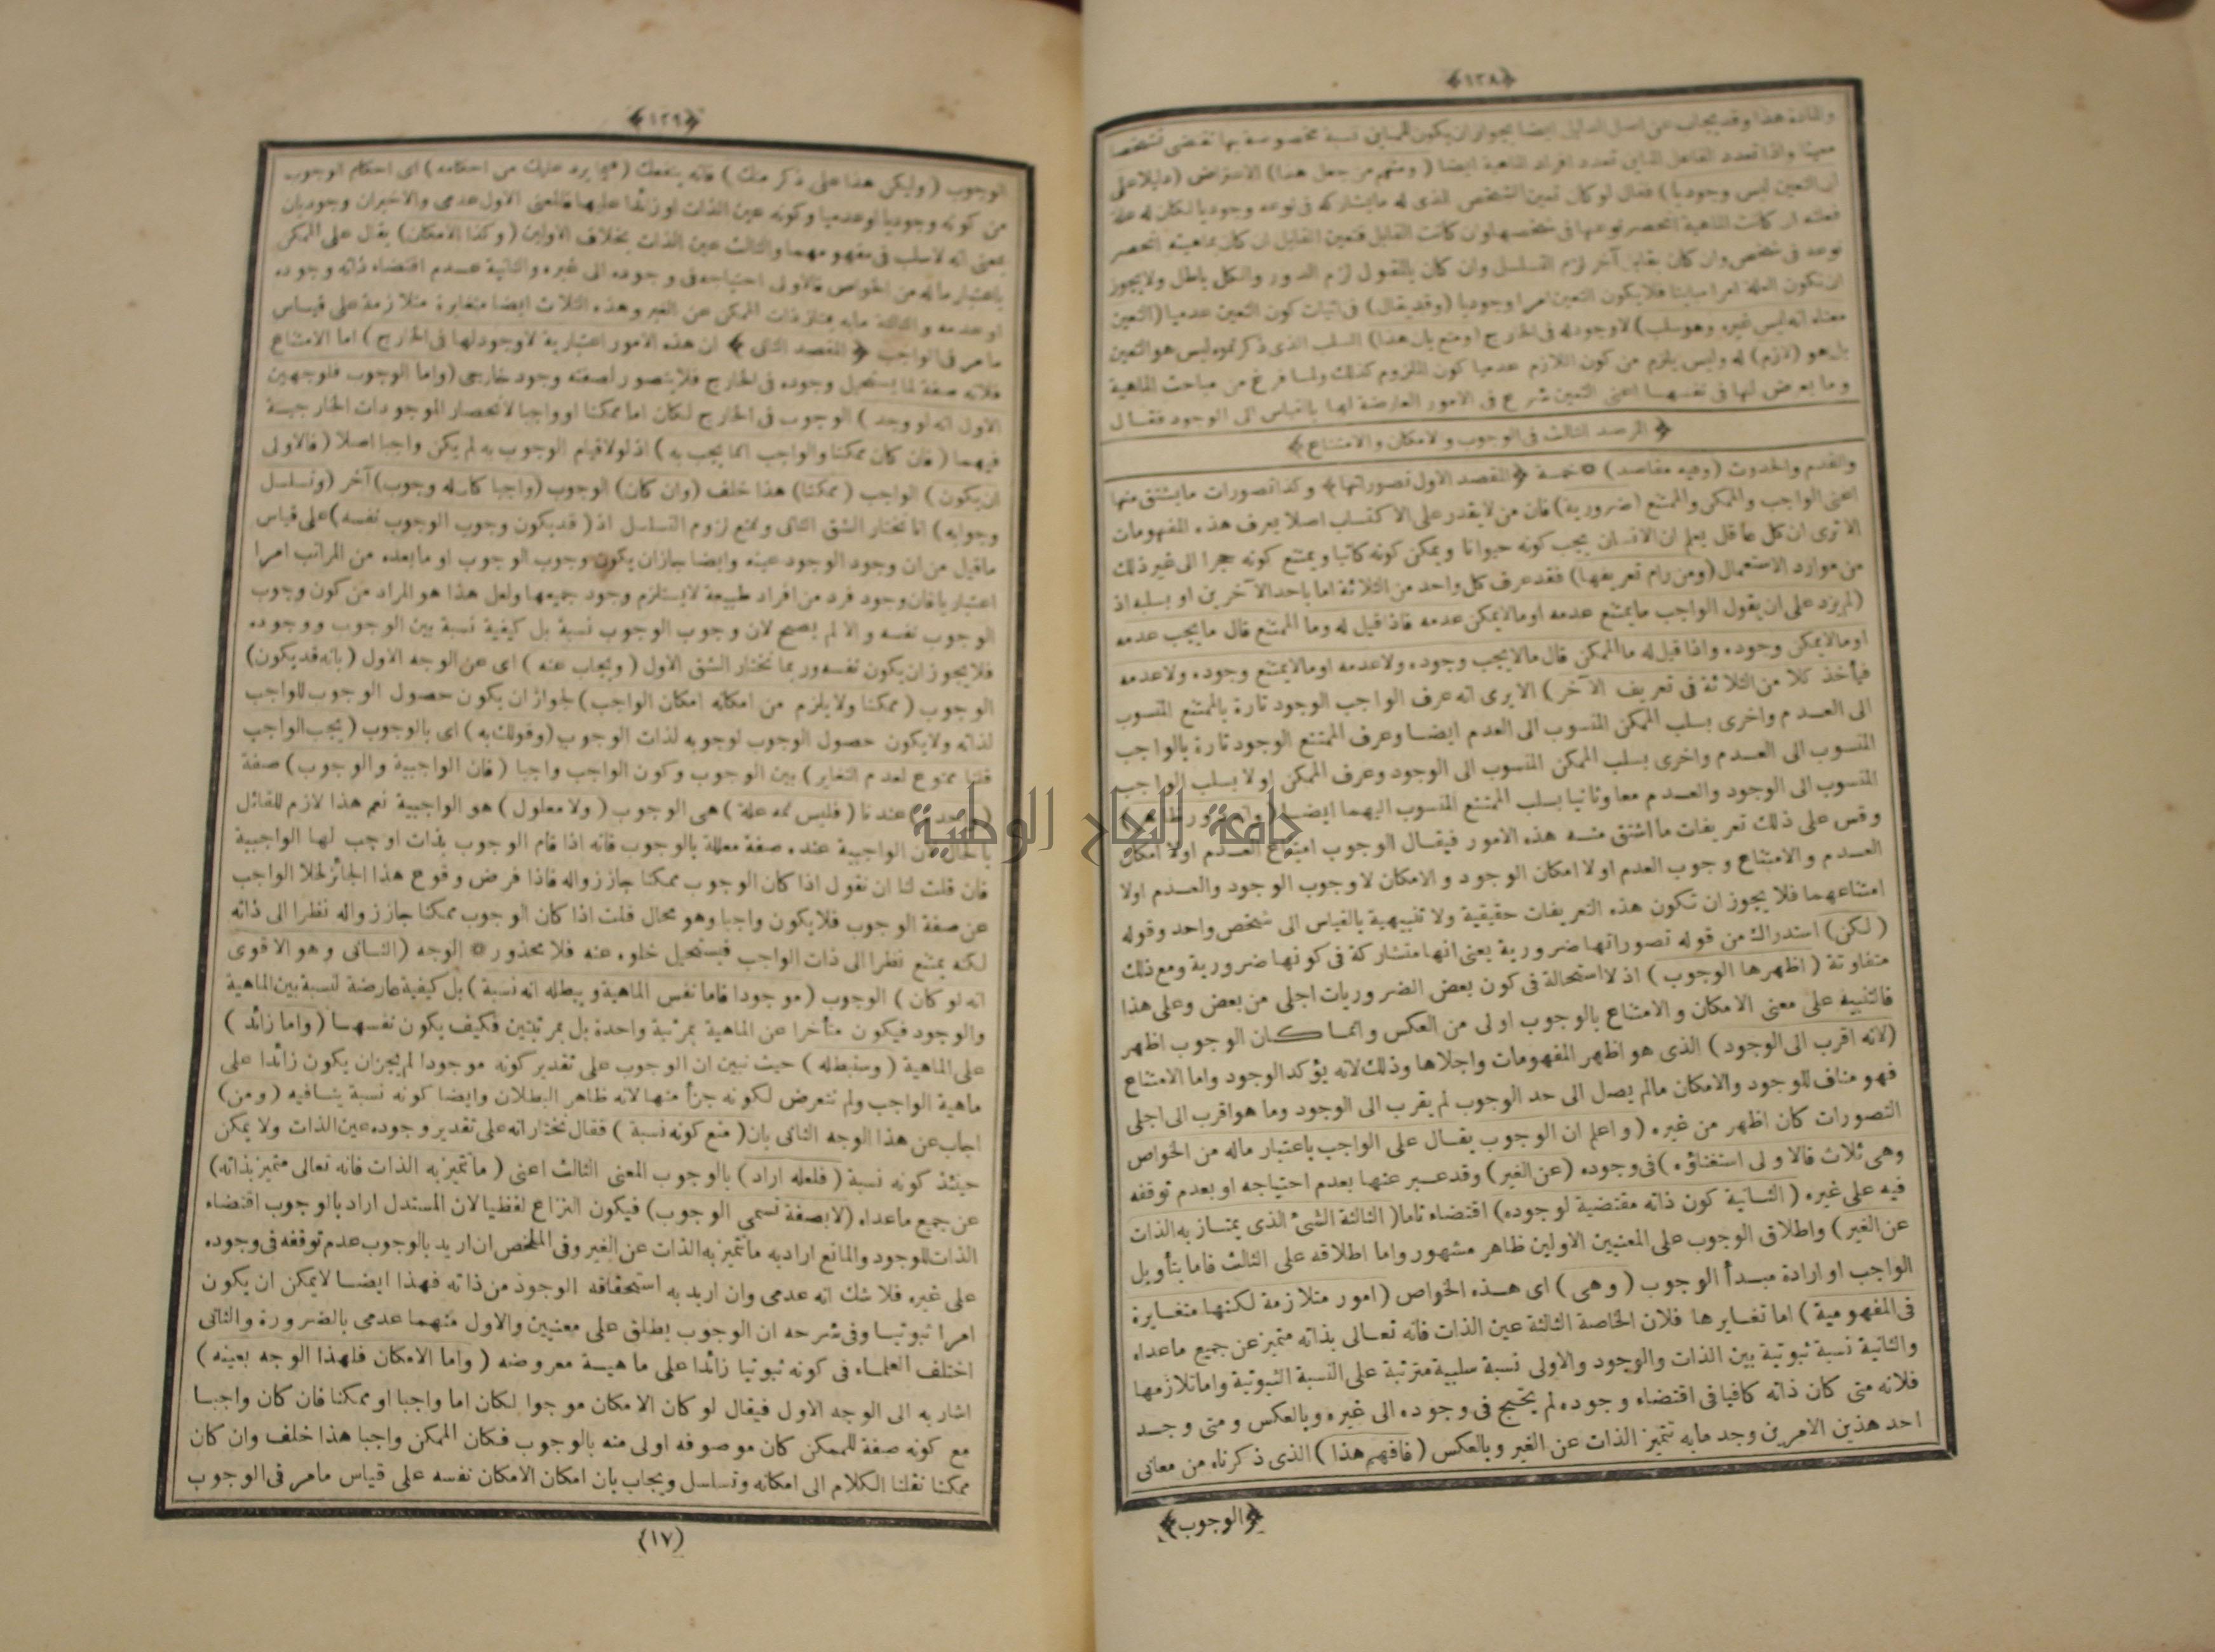 ﴿١٢٨﴾
والمادة هذا وقد يجاب عن اصل الدليل ايضا بجواز ان يكون للمباين نسبة مخصوصة بها تقضى تشخصا
معينا واذا تعدد الفاعل المباين تعدد افراد الماهية ايضا ( ومنهم من جعل هذا ) الاعتراض ( دليلا على
ان التعين ليس وجوديا ) فقال لو كان تعين الشخص الذى له ما يشاركه فى نوعه وجوديا لكان له علة
فعلته ان كانت الماهية انحصر نوعها فى شخصها وان كانت القابل فتعين القابل ان كان بماهيته انحصر
نوعه فى شخص وان كان بقابل آخر لزم التسلسل وان كان بالمقبول لزم الدور والكل باطل ولا يجوز
ان تكون العلة امرا مباينا فلا يكون التعين امرا وجوديا (وقد يقال) فى اثبات كون التعين عدميا (التعين
معناه انه ليس غيره وهو سلب) لا وجود له فى الخارج ( ومنع بان هذا ) السلب الذى ذكرتموه ليس هو التعين
بل هو (لازم) له وليس يلزم من كون اللازم عدميا كون الملزوم كذلك ولما فرغ من مباحث الماهية
وما يعرض لها فى نفسها اعنى التعين شرع فى الامور العارضة لها بالقياس الى الوجود فقال
﴿ المرصد الثالث فى الوجوب والامكان والامتناع ﴾
والقدم والحدوث (وفيه مقاصد) ۞ خمسة ﴿المقصد الاول تصوراتها﴾ وكذا تصورات ما يشتق منها
اعنى الواجب والممكن والممتنع (ضرورية) فان من لا يقدر على الاكتساب اصلا يعرف هذه المفهومات
الا ترى ان كل عاقل يعلم ان الانسان يجب كونه حيوانا ويمكن كونه كاتبا ويمتنع كونه حجرا الى غير ذلك
من موارد الاستعمال (ومن رام تعريفها) فقد عرف كل واحد من الثلاثة اما باحد الآخرين او بسلبه اذ
(لم يزد على ان يقول الواجب ما يمتنع عدمه او ما لا يمكن عدمه فاذا قيل له وما الممتنع قال ما يجب عدمه
او ما لا يمكن وجوده واذا قيل له ما الممكن قال ما لا يجب وجوده ولا عدمه او ما لا يمتنع وجوده ولا عدمه
فيأخذ كلا من الثلاثة فى تعريف الآخر ) الا يرى انه عرف الواجب الوجود تارة بالممتنع المنسوب
الى العدم واخرى بسلب الممكن المنسوب الى العدم ايضا وعرف الممتنع الوجود تارة بالواجب
المنسوب الى العدم واخرى بسلب الممكن المنسوب الى الوجود وعرف الممكن اولا بسلب الواجب
المنسوب الى الوجود والعدم معا وثانيا بسلب الممتنع المنسوب اليهما ايضا
وقس على ذلك تعريفات ما اشتق منه هذه الامور فيقال الوجوب امتناع العدم او لا امكان
العدم والامتناع وجوب العدم او لا امكان الوجود والامكان لا وجوب الوجود والعدم او لا
امتناعهما فلا يجوز ان تكون هذه التعريفات حقيقية ولا تنبيهية بالقياس الى شخص واحد وقوله
(لكن) استدراك من قوله تصوراتها ضرورية يعنى انها متشاركة فى كونها ضرورية ومع ذلك
متفاوتة ( اظهرها الوجوب ) اذ لا استحالة فى كون بعض الضروريات اجلى من بعض وعلى هذا
فالتنبيه على معنى الامكان والامتناع بالوجوب اولى من العكس وانما كان الوجوب اظهر
(لانه اقرب الى الوجود ) الذى هو اظهر المفهومات واجلاها وذلك لانه يؤكد الوجود واما الامتناع
فهو مناف للوجود والامكان مالم يصل الى حد الوجوب لم يقرب الى الوجود وما هو اقرب الى اجلى
التصورات كان اظهر من غيره ( واعلم ان الوجوب يقال على الواجب باعتبار ماله من الخواص
وهى ثلاث فالاولى استغناؤه ) فى وجوده (عن الغير) وقد عبر عنها بعدم احتياجه او بعدم توقفه
فيه على غيره ( الثانية كون ذاته مقتضية لوجوده) اقتضاء تاما ( الثالثة الشئ الذى يمتاز به الذات
عن الغير ) واطلاق الوجوب على المعنيين الاولين ظاهر مشهور واما اطلاقه على الثالث فاما بتأويل
الواجب او ارادة مبدأ الوجوب ( وهى ) اى هذه الخواص ( امور متلازمة لكنها متغايرة
فى المفهومية ) اما تغايرها فلان الخاصة الثالثة عين الذات فانه تعالى بذاته متميز عن جميع ما عداه
والثانية نسبة ثبوتية بين الذات والوجود والاولى نسبة سلبية مترتبة على النسبة الثبوتية واما تلازمها
فلانه متى كان ذاته كافيا فى اقتضاء وجوده لم يحتج فى وجوده الى غيره وبالعكس ومتى وجد
احد هذين الامرين وجد ما به تتميز الذات عن الغير وبالعكس ( فافهم هذا ) الذى ذكرناه من معانى
﴿الوجوب﴾
﴿١٢٩﴾
الوجوب ( وليكن هذا على ذكر منك ) فانه ينفعك ( فيما يرد عليك من احكامه ) اى احكام الوجوب
من كونه وجوديا او عدميا وكونه عين الذات او زائدا عليها فالمعنى الاول عدمى والاخيران وجوديان
بمعنى انه لا سلب فى مفهومهما والثالث عين الذات بخلاف الاولين ( وكذا الامكان ) يقال على الممكن
باعتبار ماله من الخواص فالاولى احتياجه فى وجوده الى غيره والثانية عدم اقتضاء ذاته وجوده
او عدمه والثالثة ما به يمتاز ذات الممكن عن الغير وهذه الثلاث ايضا متغايرة متلازمة على قياس
ما مر فى الواجب ﴿ المقصد الثانى ﴾ ان هذه الامور اعتبارية لا وجود لها فى الخارج ) اما الامتناع
فلانه صفة لما يستحيل وجوده فى الخارج فلا يتصور لصفته وجود خارجى (واما الوجوب فلوجهين
الاول انه لو وجد ) الوجوب فى الخارج لكان اما ممكنا او واجبا لانحصار الموجودات الخارجية
فيهما ( فان كان ممكنا والواجب انما يجب به ) اذ لولا قيام الوجوب به لم يكن واجبا اصلا ( فالاولى
ان يكون ) الواجب ( ممكنا) هذا خلف (وان كان) الوجوب (واجبا كان له وجوب) آخر (وتسلسل
وجوابه ) انا نختار الشق الثانى ونمنع لزوم التسلسل اذ ( قد يكون وجوب الوجوب نفسه) على قياس
ما قيل من ان وجود الوجود عينه وايضا جاز ان يكون وجوب الوجوب او ما بعده من المراتب امرا
اعتباريا فان وجود فرد من افراد طبيعة لا يستلزم وجود جميعها ولعل هذا هو المراد من كون وجوب
الوجوب نفسه والا لم يصح لان وجوب الوجوب نسبة بل كيفية نسبة بين الوجوب ووجوده
فلا يجوز ان يكون نفسه وربما نختار الشق الاول ( ويجاب عنه ) اى عن الوجه الاول ( بانه قد يكون)
الوجوب ( ممكنا ولا يلزم من امكانه امكان الواجب ) لجواز ان يكون حصول الوجوب للواجب
لذاته ولا يكون حصول الوجوب لوجوبه لذات الوجوب (وقولك به ) اى بالوجوب ( يجب الواجب
قلنا ممنوع لعدم التغاير ) بين الوجوب وكون الواجب واجبا ( فان الواجبية والوجوب ) صفة
عندنا ( فليس ثمه علة ) هى الوجوب ( ولا معلول ) هو الواجبية نعم هذا لازم للقائل
بالحال لان الواجبية عنده صفة معللة بالوجوب فانه اذا قام الوجوب بذات اوجب لها الواجبية
فان قلت لنا ان نقول اذا كان الوجوب ممكنا جاز زواله فاذا فرض وقوع هذا الجائز لخلا الواجب
عن صفة الوجوب فلا يكون واجبا وهو محال قلت اذا كان الوجوب ممكنا جاز زواله نظرا الى ذاته
لكنه يمتنع نظرا الى ذات الواجب فيستحيل خلوه عنه فلا محذور ۞ الوجه (الثانى وهو الاقوى
انه لو كان ) الوجوب ( موجودا فاما نفس الماهية ويبطله انه نسبة ) بل كيفية عارضة لنسبة بين الماهية
والوجود فيكون متأخرا عن الماهية بمرتبة واحدة بل بمرتبتين فكيف يكون نفسها ( واما زائد )
على الماهية ( وسنبطله ) حيث نبين ان الوجوب على تقدير كونه موجودا لم يجز ان يكون زائدا على
ماهية الواجب ولم نتعرض لكونه جزأ منها لانه ظاهر البطلان وايضا كونه نسبة ينافيه ( ومن )
اجاب عن هذا الوجه الثانى بان ( منع كونه نسبة ) فقال نختار انه على تقدير وجوده عين الذات ولا يمكن
حينئذ كونه نسبة ( فلعله اراد ) بالوجوب المعنى الثالث اعنى ( ما تتميز به الذات فانه تعالى متميز بذاته)
عن جميع ما عداه (لا بصفة تسمى الوجوب) فيكون النزاع لفظيا لان المستدل اراد بالوجوب اقتضاء
الذات للوجود والمانع اراد به ما تتميز به الذات عن الغير وفى الملخص ان اريد بالوجوب عدم توقفه فى وجوده
على غيره فلا شك انه عدمى وان اريد به استحقاقه الوجود من ذاته فهذا ايضا لا يمكن ان يكون
امرا ثبوتيا وفى شرحه ان الوجوب يطلق على معنيين والاول منهما عدمى بالضرورة والثانى
اختلف العلماء فى كونه ثبوتيا زائدا على ماهية معروضه ( واما الامكان فلهذا الوجه بعينه )
اشار به الى الوجه الاول فيقال لو كان الامكان موجوا لكان اما واجبا او ممكنا فان كان واجبا
مع كونه صفة للممكن كان موصوفه اولى منه بالوجوب فكان الممكن واجبا هذا خلف وان كان
ممكنا نقلنا الكلام الى امكانه وتسلسل ويجاب بان امكان الامكان نفسه على قياس ما مر فى الوجوب
(١٧)
جامعة النجاح الوطنية